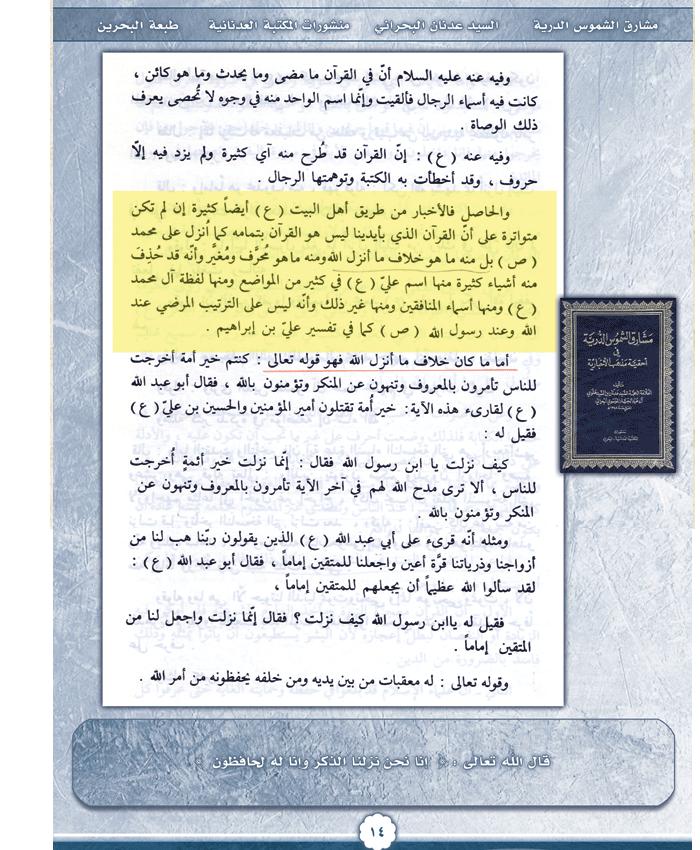 مشارق الشموس الدرية السيد عدنان البحراني منشورات المكتبة العدنانية طبعة البحرين
وفيه عنه عليه السلام أنّ في القرآن ما مضى وما يحدث وما هو كائن ،
كانت فيه أسماء الرجال فألقيت وإنّما اسم الواحد منه في وجوه لا تُحصى يعرف
ذلك الوصاة .
وفيه عنه ( ع ) : إنّ القرآن قد طُرح منه آي كثيرة ولم يزد فيه إلاّ
حروف ، وقد أخطأت به الكتبة وتوهمتها الرجال .
والحاصل فالأخبار من طريق أهل البيت ( ع ) أيضاً كثيرة إن لم تكن
متواترة على أنّ القرآن الذي بأيدينا ليس هو القرآن بتمامه كما أُنزل على محمد
( ص ) بل منه ما هو خلاف ما أنزل الله ومنه ما هو مُحرَّف ومُغيَّر وأنّه قد حُذِفَ
منه أشياء كثيرة منها اسم عليّ ( ع ) في كثير من المواضع ومنها لفظة آل محمد
( ع ) ومنها أسماء المنافقين ومنها غير ذلك وأنّه ليس على الترتيب المرضي عند
الله وعند رسول الله ( ص ) كما في تفسير عليّ بن إبراهيم .
أما ما كان خلاف ما أنزل الله فهو قوله تعالى : كنتم خير أمة أخرجت
للناس تأمرون بالمعروف وتنهون عن المنكر وتؤمنون بالله ، فقال أبو عبد الله
( ع ) لقارىء هذه الآية : خير أُمة تقتلون أمير المؤمنين والحسين بن عليّ ( ع )
فقيل له :
كيف نزلت يا ابن رسول الله فقال : إنّما نزلت خير أئمةٍ أُخرجت
للناس ، ألا ترى مدح الله لهم في آخر الآية تأمرون بالمعروف وتنهون عن
المنكر وتؤمنون بالله .
ومثله أنّه قرىء على أبي عبد الله ( ع ) الذين يقولون ربّنا هب لنا من
أزواجنا وذرياتنا قرَّة أعين واجعلنا للمتقين إماماً ، فقال أبو عبد الله ( ع ) :
لقد سألوا الله عظيماً أن يجعلهم للمتقين إماماً ،
فقيل له ياابن رسول الله كيف نزلت ؟ فقال إنّما نزلت واجعل لنا من
المتقين إماماً .
وقوله تعالى : له معقبات من بين يديه ومن خلفه يحفظونه من أمر الله .
مشارق الشموس الدرية
في
أحقية مذهب الأخبارية
قال الله تعالى : ﴿ إنا نحن نزلنا الذكر وإنا له لحافظون ﴾
١٤